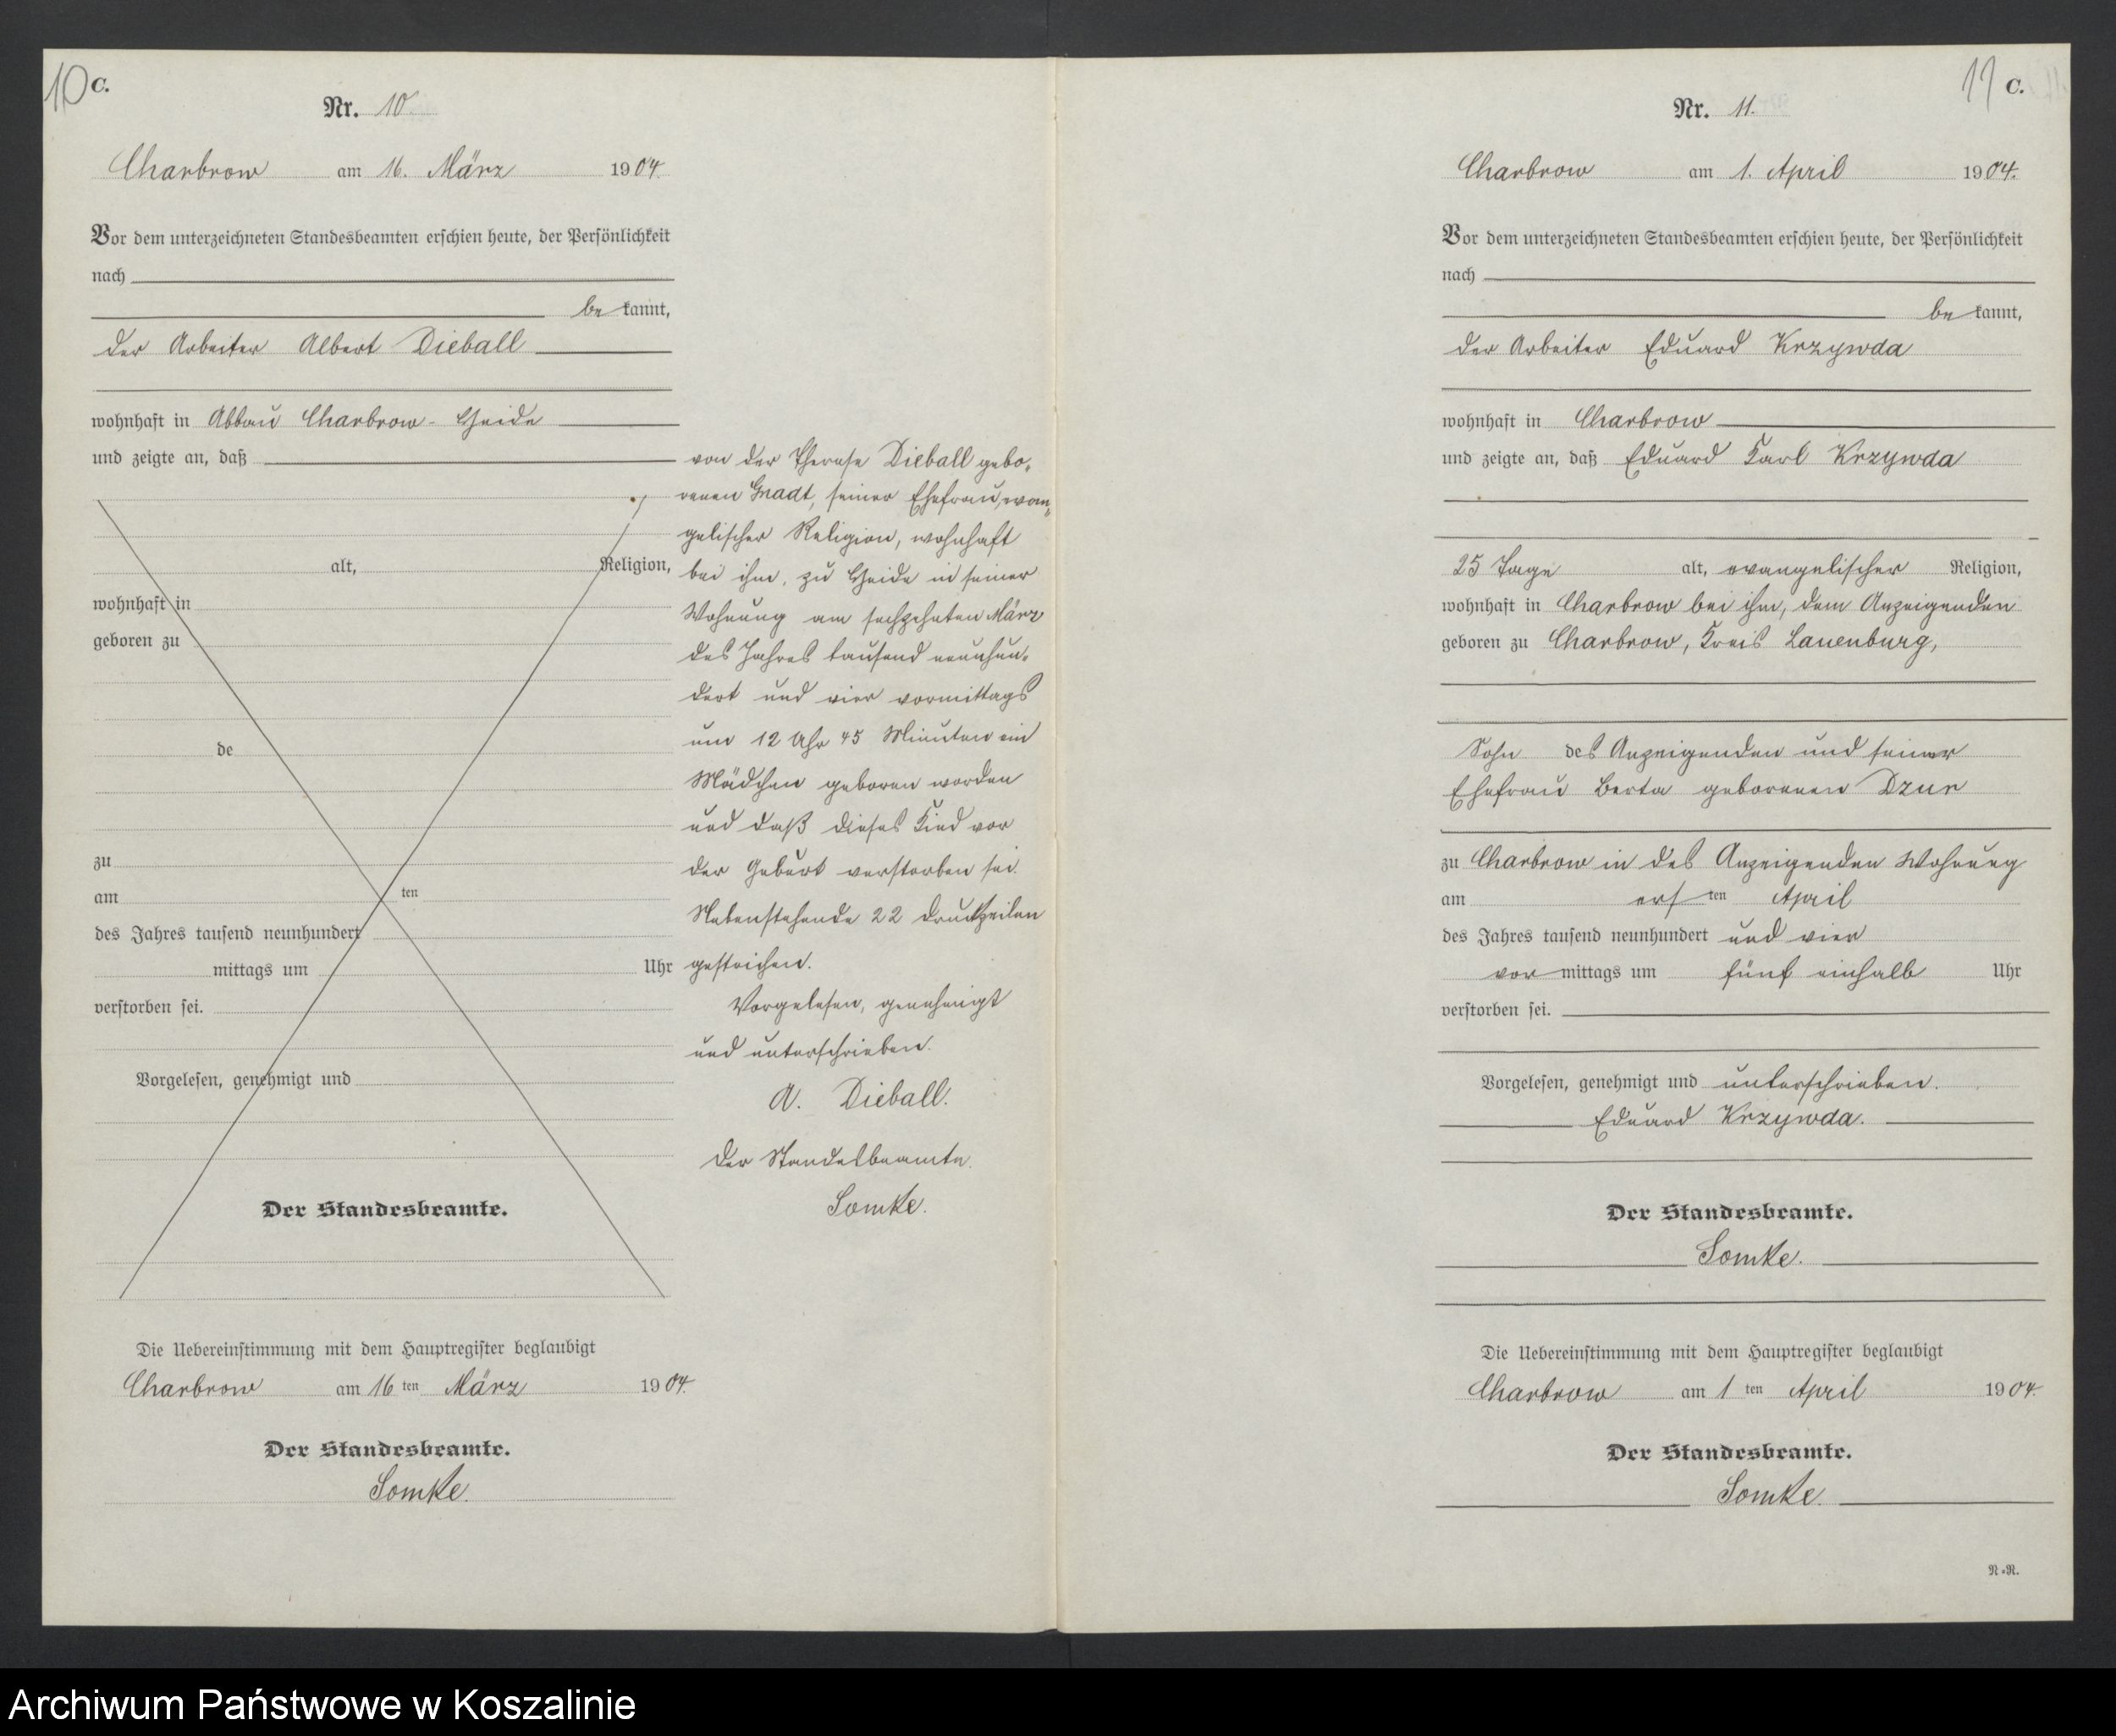 10 C.
Nr. 10
Charbrow am 16. März 1904.
Vor dem unterzeichneten Standesbeamten erschien heute, der Persönlichkeit
nach
be kannt,
der Arbeiter Albert Dieball
wohnhaft in Abbau Charbrow-Heide
und zeigte an, daß
von der Therese Dieball gebo„
renen Gnadt, seiner Ehefrau, evan„
gelischer Religion, wohnhaft
alt, Religion,
bei ihm, zu Heide in seiner
wohnhaft in
Wohnung am sechzehnten März
geboren zu
des Jahres tausend neunhun„
dert und vier vormittags
um 12 Uhr 45 Minuten ein
de
Mädchen geboren worden
und daß dieses Kind vor
zu
der Geburt verstorben sei.
am ten
Nebenstehende 22 Druckzeilen
des Jahres tausend neunhundert
mittags um Uhr
gestrichen.
verstorben sei.
Vorgelesen, genehmigt
und unterschrieben.
Vorgelesen, genehmigt und
A. Dieball.
Der Standesbeamte.
Der Standesbeamte.
Somke.
Die Uebereinstimmung mit dem Hauptregister beglaubigt
Charbrow am 16 ten März 1904.
Der Standesbeamte.
Somke.
11 C.
Nr. 11.
Charbrow am 1. April 1904.
Vor dem unterzeichneten Standesbeamten erschien heute, der Persönlichkeit
nach
be kannt,
der Arbeiter Eduard Krzywda
wohnhaft in Charbrow
und zeigte an, daß Eduard Karl Krzywda
25 Tage alt, evangelischer Religion,
wohnhaft in Charbrow bei ihm, dem Anzeigenden
geboren zu Charbrow, Kreis Lauenburg,
Sohn des Anzeigenden und seiner
Ehefrau Berta geborenen Dzur
zu Charbrow in des Anzeigenden Wohnung
am ers ten April
des Jahres tausend neunhundert und vier
vor mittags um fünf einhalb Uhr
verstorben sei.
Vorgelesen, genehmigt und unterschrieben.
Eduard Krzywda.
Der Standesbeamte.
Somke.
Die Uebereinstimmung mit dem Hauptregister beglaubigt
Charbrow am 1 ten April 1904.
Der Standesbeamte.
Somke.
N.=R.
Archiwum Państwowe w Koszalinie